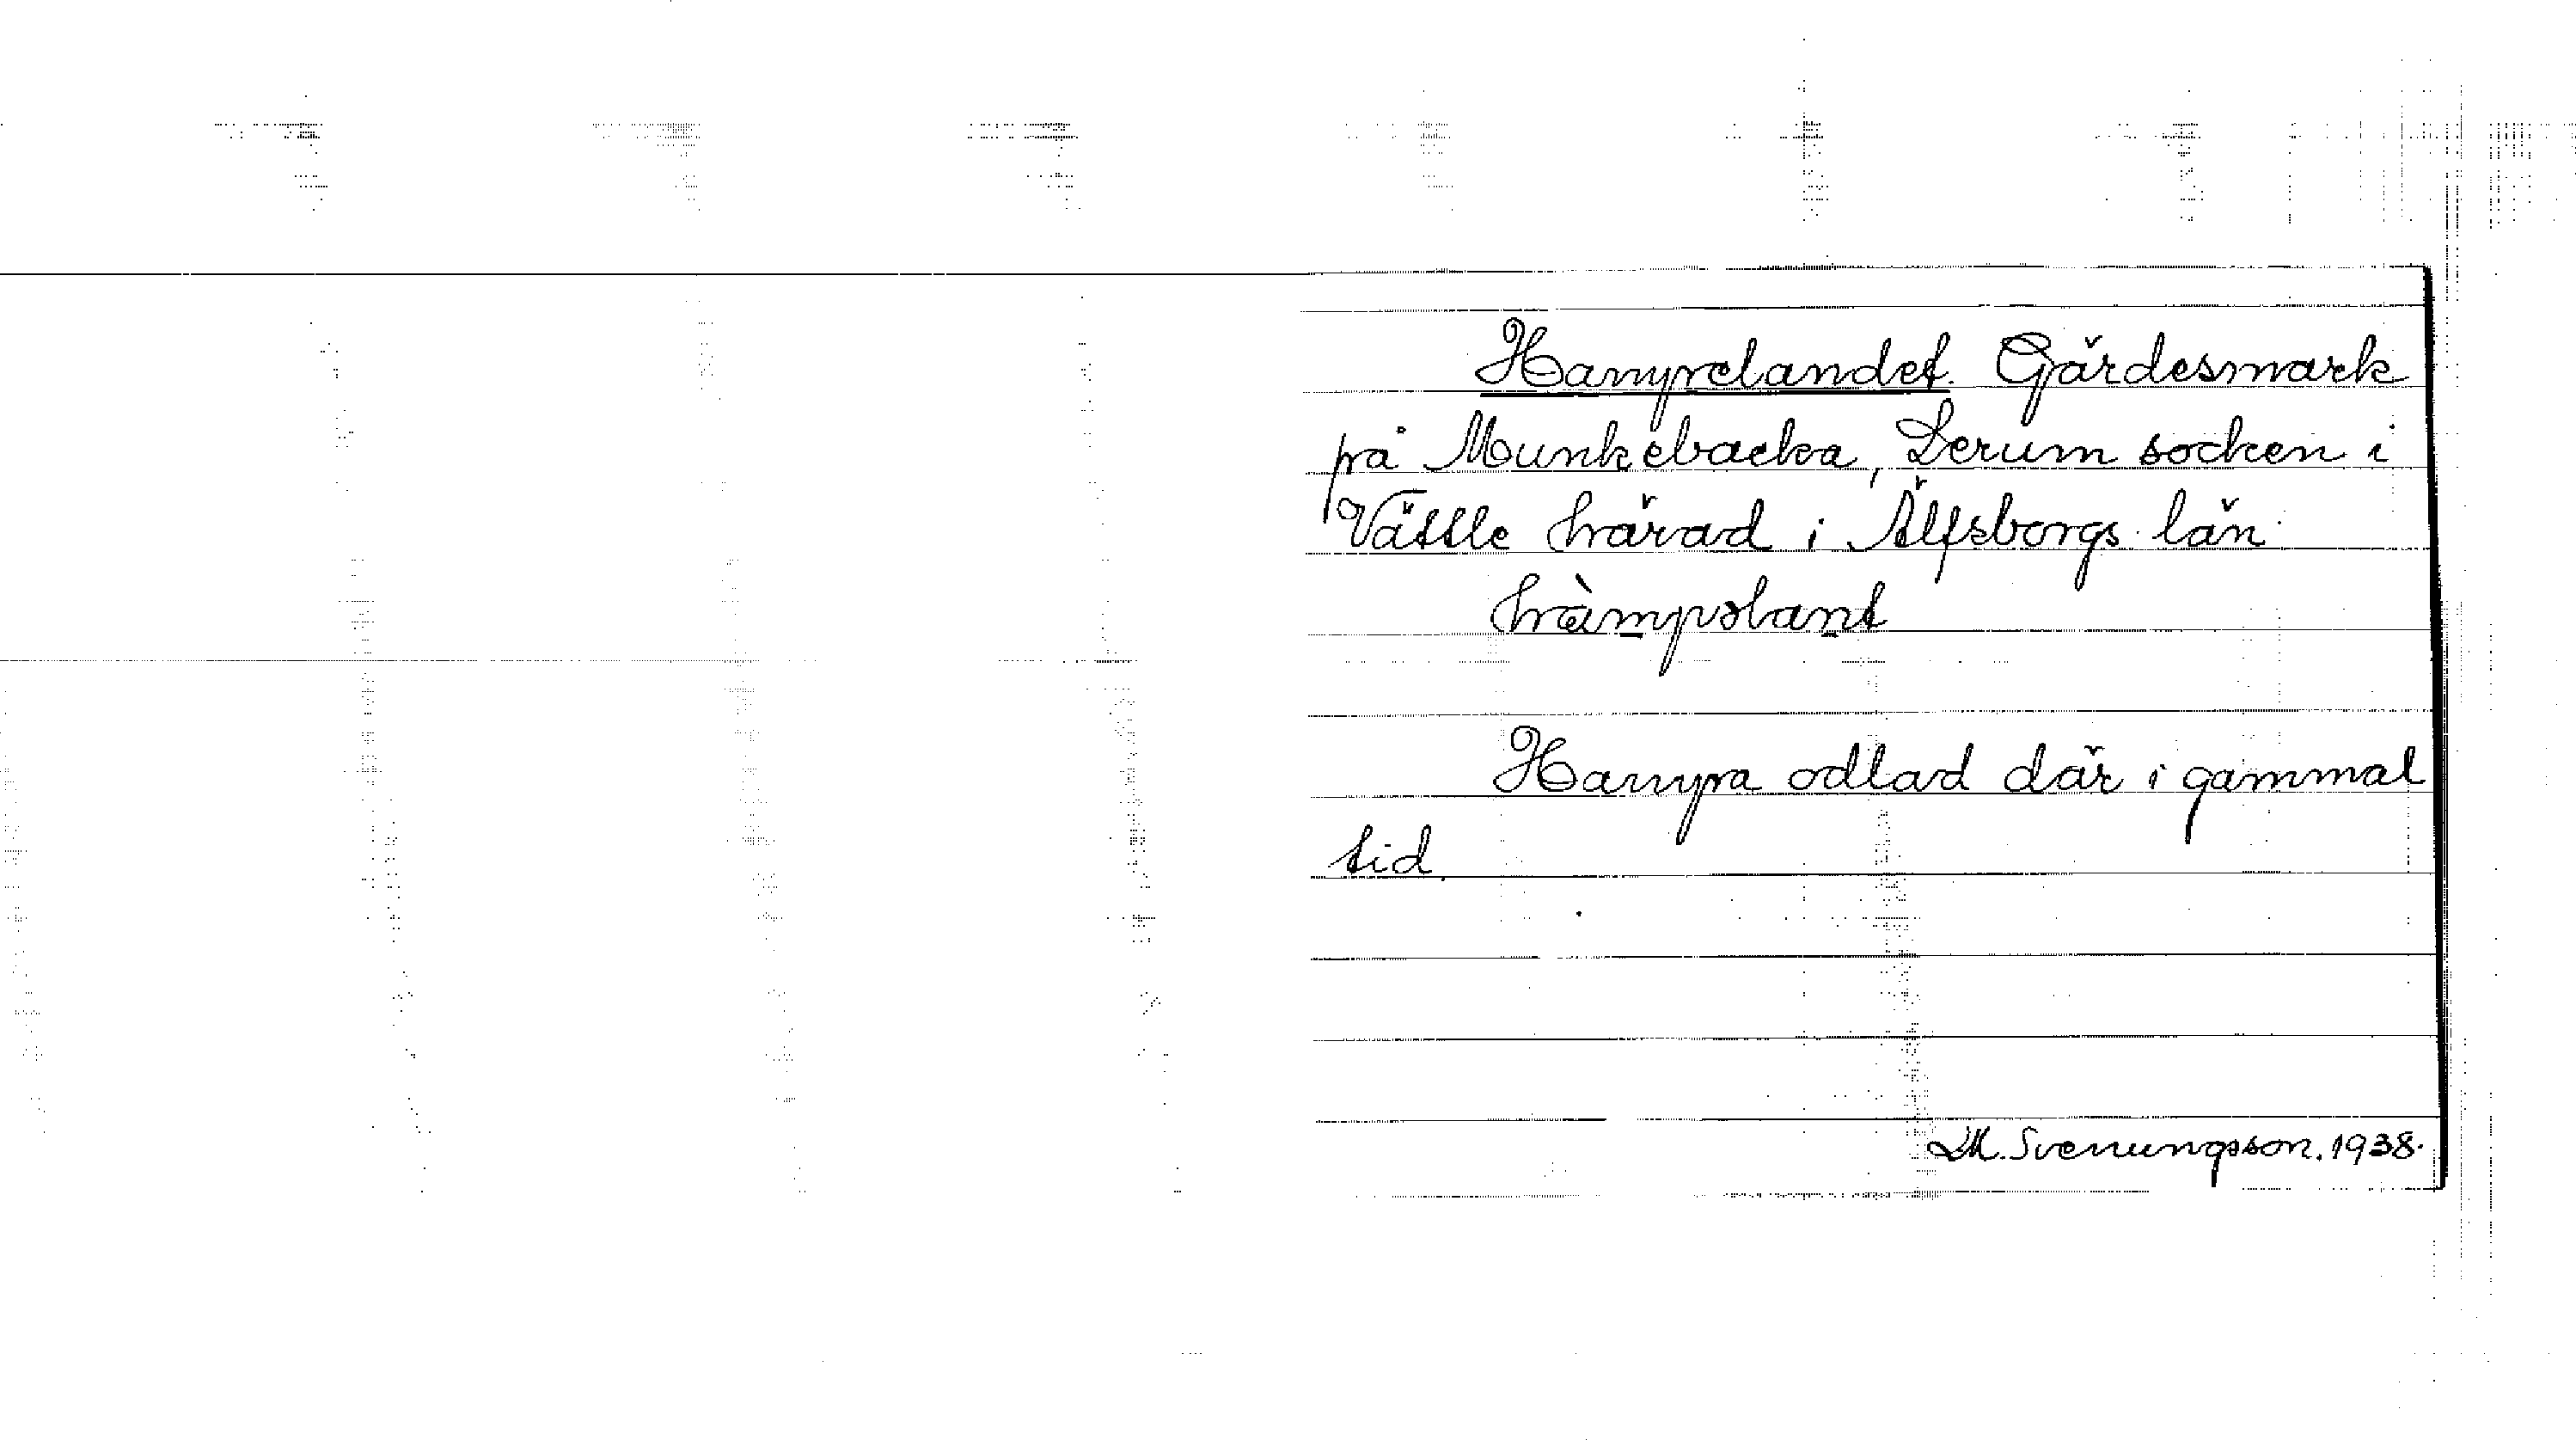 Hampelandet. Gärdesmark
på Munkebacka, Lerum socken i
Vättle härad i Älfsborgs län
hàmpəlant
Hampa odlad där i gammal
tid.
M. Svenungsson. 1938.